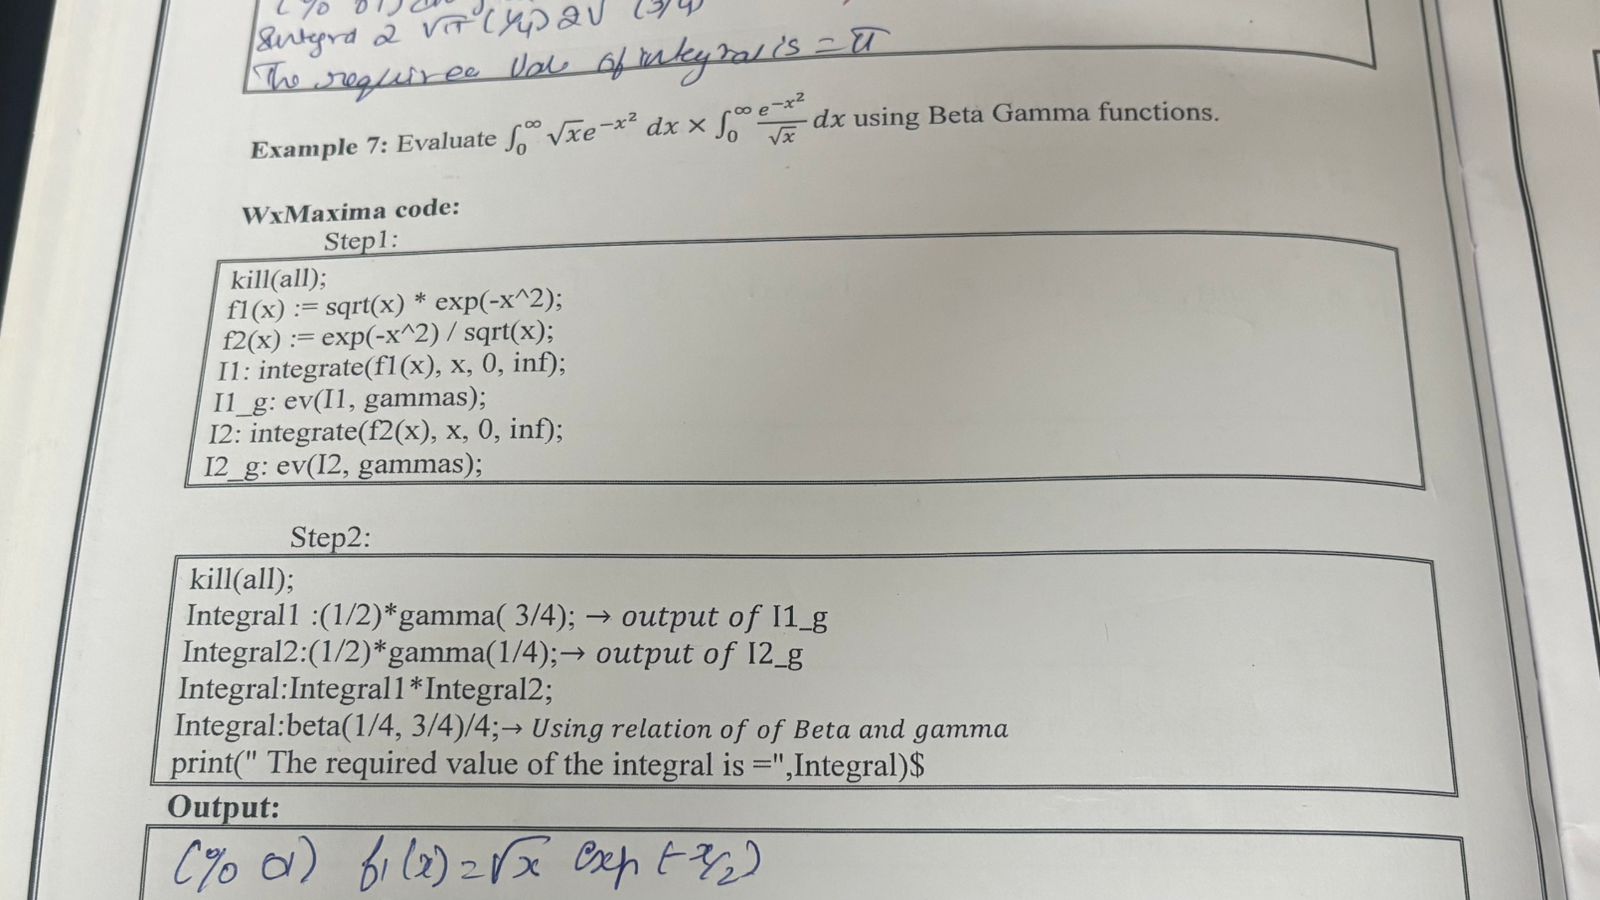 Integral 2 √π (1/4) 2√ (3/4)
The required Value of integral is = π
Example 7: Evaluate ∫₀^∞ √x e^{−x²} dx × ∫₀^∞ e^{−x²}/√x dx using Beta Gamma functions.
WxMaxima code:
Step1:
kill(all);
f1(x) := sqrt(x) * exp(-x^2);
f2(x) := exp(-x^2) / sqrt(x);
I1: integrate(f1(x), x, 0, inf);
I1_g: ev(I1, gammas);
I2: integrate(f2(x), x, 0, inf);
I2_g: ev(I2, gammas);
Step2:
kill(all);
Integral1 :(1/2)*gamma( 3/4); → output of I1_g
Integral2:(1/2)*gamma(1/4);→ output of I2_g
Integral:Integral1*Integral2;
Integral:beta(1/4, 3/4)/4;→ Using relation of of Beta and gamma
print(" The required value of the integral is =",Integral)$
Output:
(% o1) f1(x) = √x exp (-x/2)